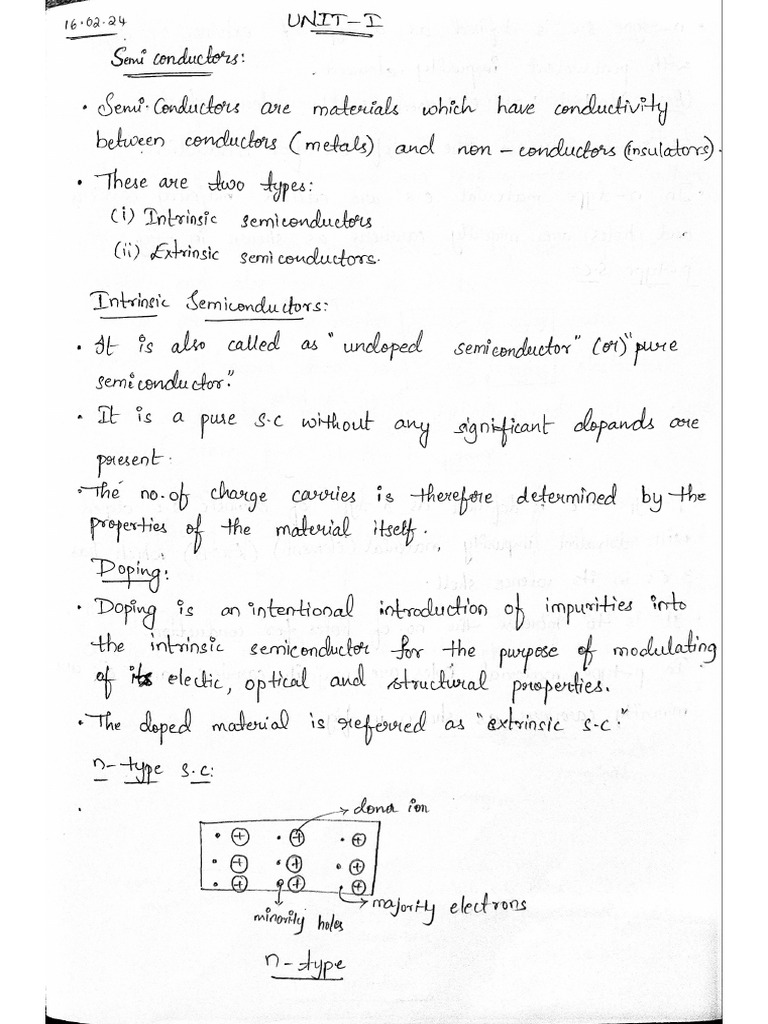 16.02.24
UNIT-I
Semi conductors:
• Semi-Conductors are materials which have conductivity
between conductors (metals) and non-conductors (insulators).
• These are two types:
(i) Intrinsic semiconductors
(ii) Extrinsic semiconductors.
Intrinsic Semiconductors:
• It is also called as "undoped semiconductor" (or) "pure
semiconductor."
• It is a pure s.c without any significant dopands are
present.
• The no. of charge carries is therefore determined by the
properties of the material itself.
Doping:
• Doping is an intentional introduction of impurities into
the intrinsic semiconductor for the purpose of modulating
of its electic, optical and structural properties.
• The doped material is referred as "extrinsic s.c."
n-type s.c:
dona ion
majority electrons
minority holes
n-type